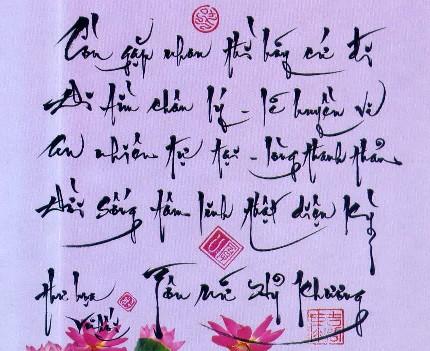 Còn gặp nhau thì hãy cứ đi
Đi tìm chân lý - lẽ huyền vi
An nhiên tự tại - lòng thanh thản
Đời sống tâm linh thật diệu kỳ
Tôn Nữ Hỷ Khương
Thư họa